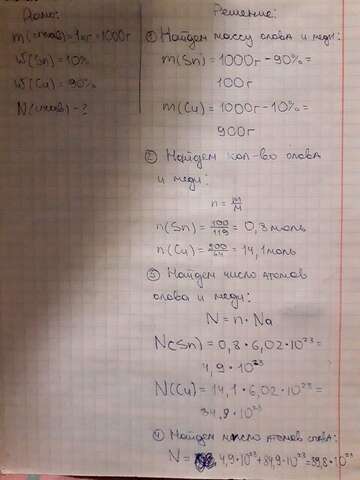 Дано:
m(сплав) = 1кг = 1000г
W(Sn) = 10%
W(Cu) = 90%
N(сплав) - ?
Решение:
① Найдем массу олова и меди:
m(Sn) = 1000г - 90% =
100г
m(Cu) = 1000г - 10% =
900г
② Найдем кол-во олова
и меди:
n = m/M
n(Sn) = 100/119 = 0,8 моль
n(Cu) = 900/64 = 14,1 моль
③ Найдем число атомов
олова и меди:
N = n · Na
N(Sn) = 0,8 · 6,02 · 10²³ =
4,9 · 10²³
N(Cu) = 14,1 · 6,02 · 10²³ =
84,9 · 10²³
④ Найдем число атомов сплава:
N = 4,9·10²³ + 84,9·10²³ = 89,8·10²³